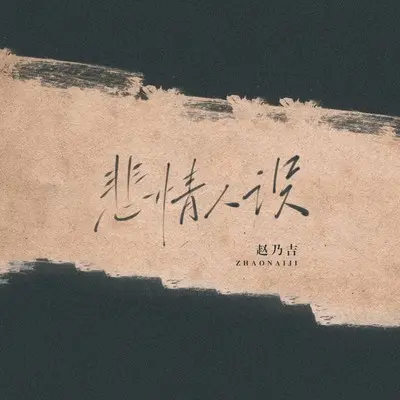 悲情人误
赵乃吉
ZHAONAIJI